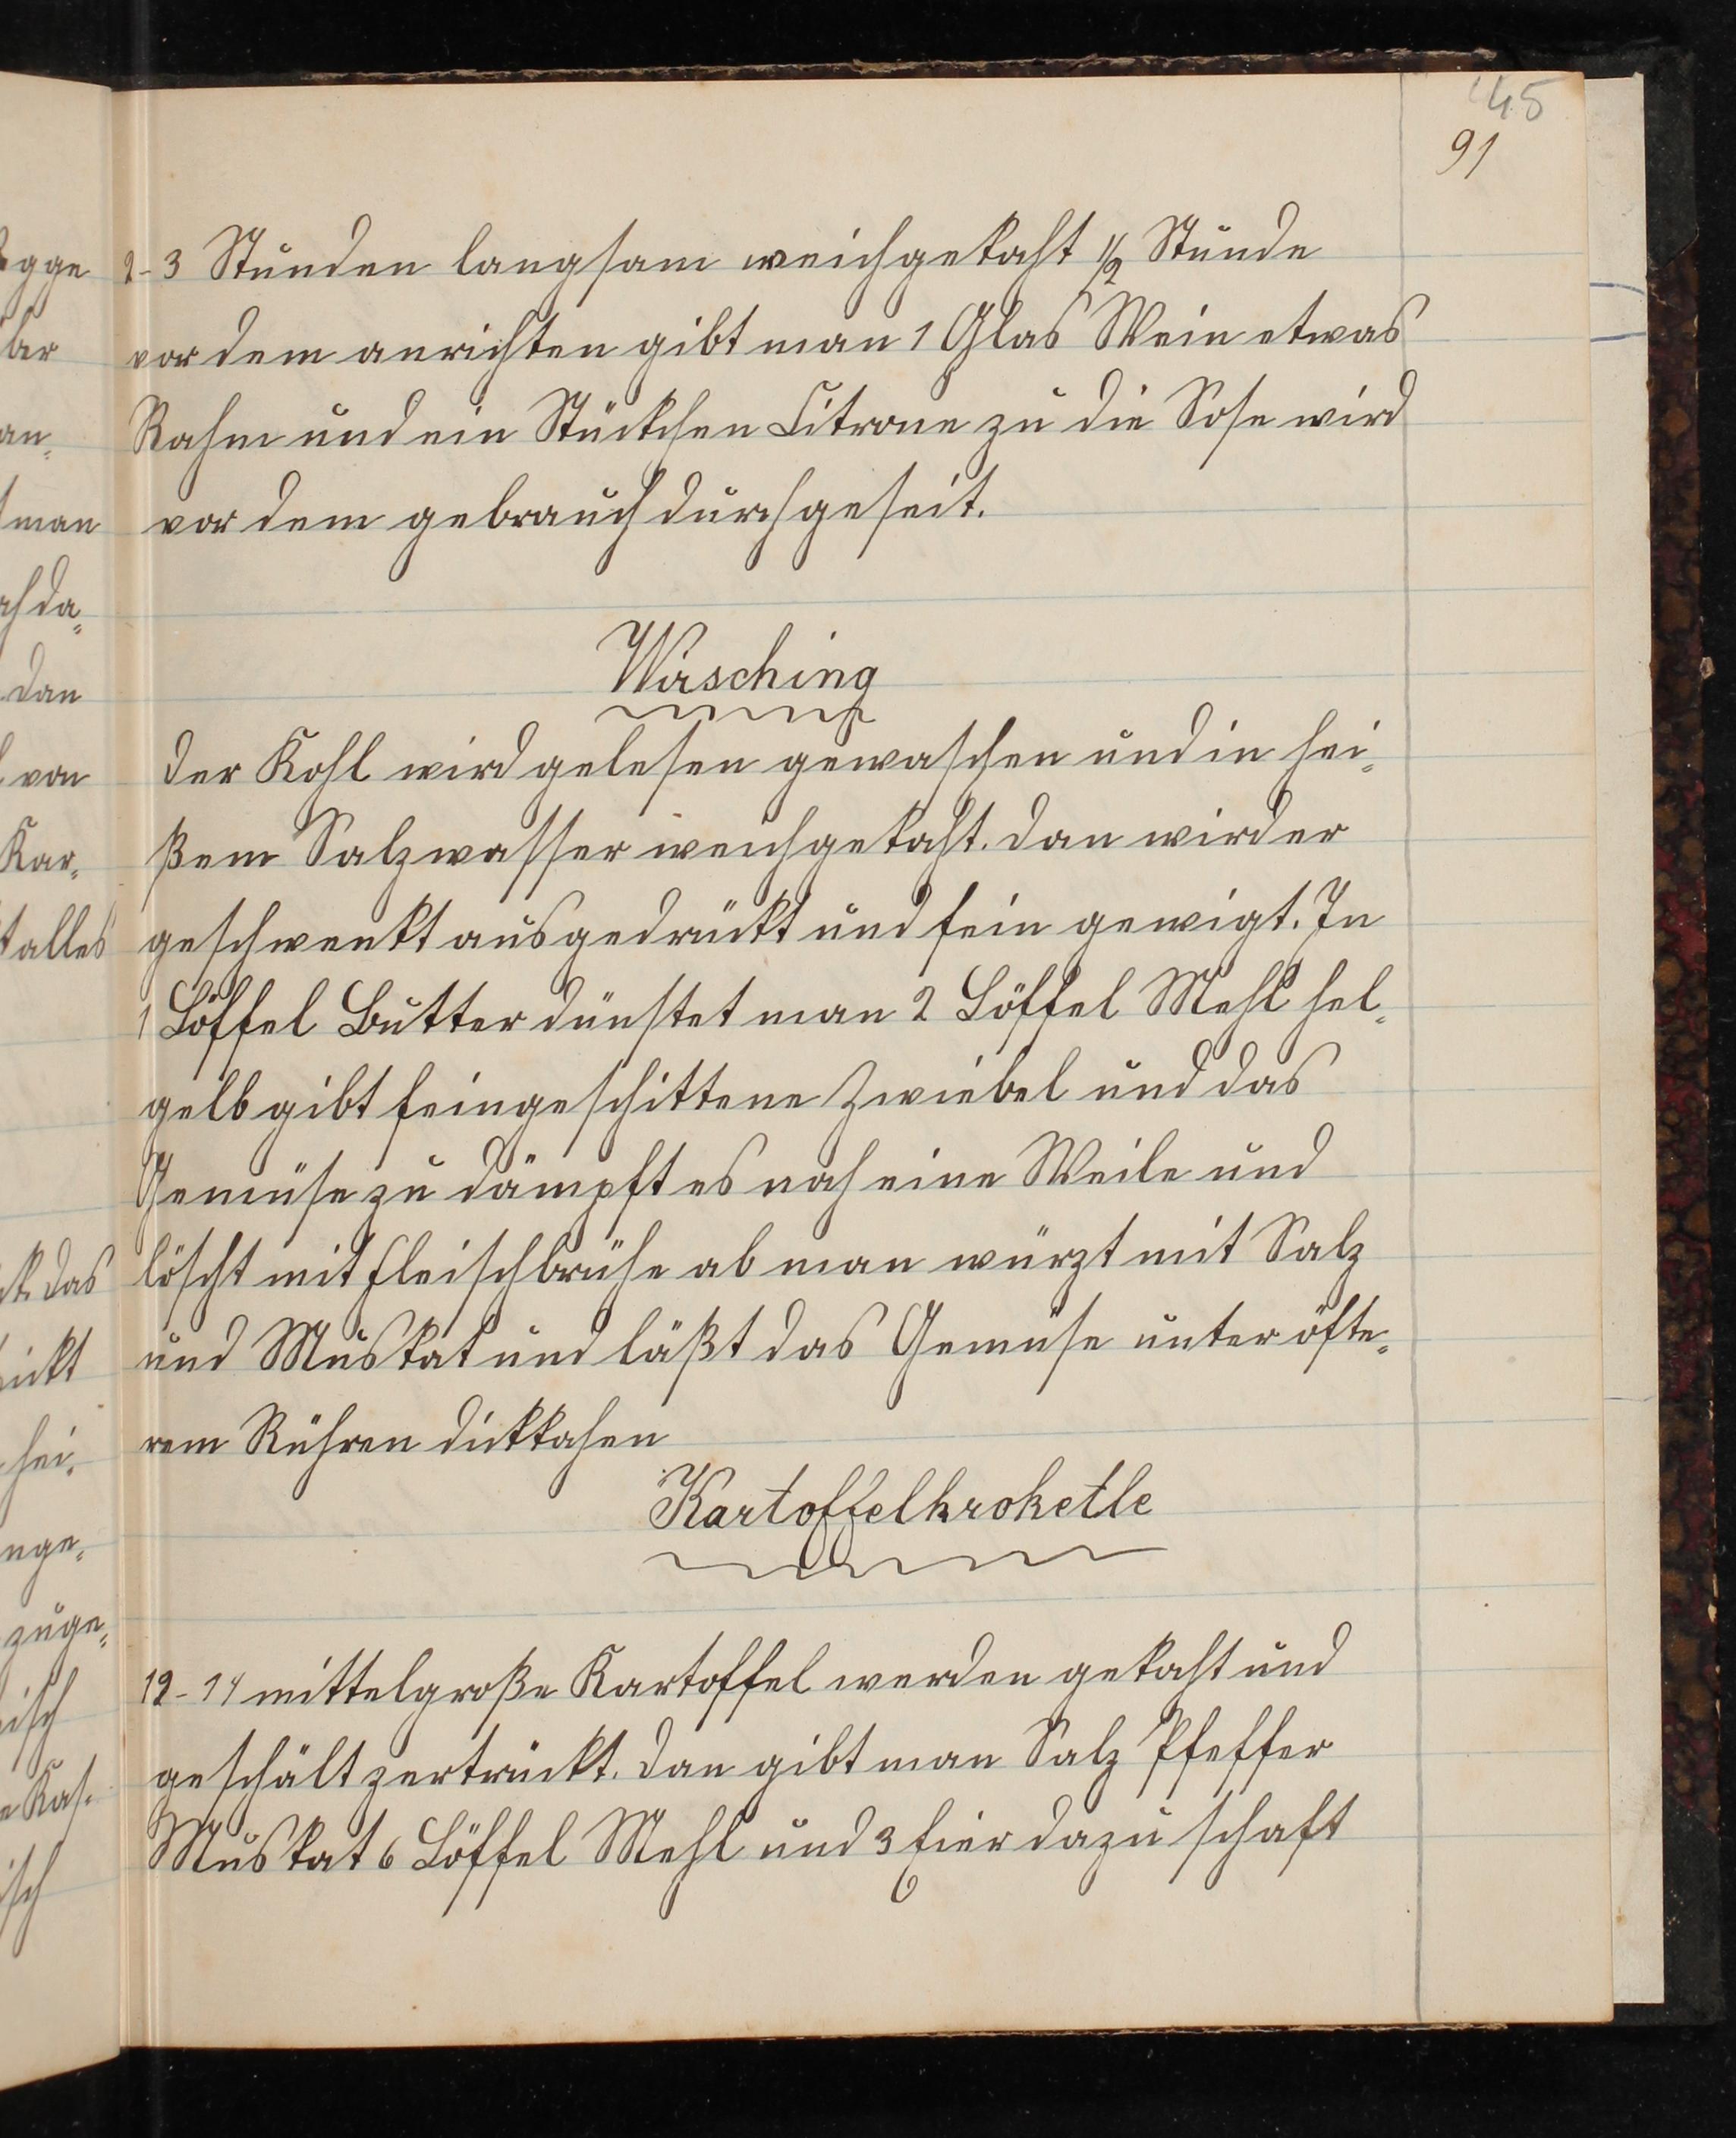 45
91
2-3 Stunden langsam weichgekocht 1/2 Stunde
vor dem anrichten gibt man 1 Glas Wein etwas
Rahm und ein Stückchen Citrone zu die Sose wird
vor dem gebrauch durchgeseit.
Wirsching
Der Kohl wird gelesen gewaschen und in hei-
ßem Salzwasser weichgekocht. Dan wird er
geschwenkt ausgedrückt und fein gewigt. In
1 Löffel Butter dünstet man 2 Löffel Mehl hel-
gelb gibt feingeschittene Zwiebel und das
Gemüse zu dämpft es noch eine Weile und
löscht mit Fleischbrühe ab man würzt mit Salz
und Muskat und läßt das Gemüse unter öfte-
rem Rühren dickkochen
Kartoffelkroketle
12-14 mittelgroße Kartoffel werden gekocht und
geschält zertrückt. Dan gibt man Salz Pfeffer
Muskat 6 Löffel Mehl und 3 Eier dazu schaft